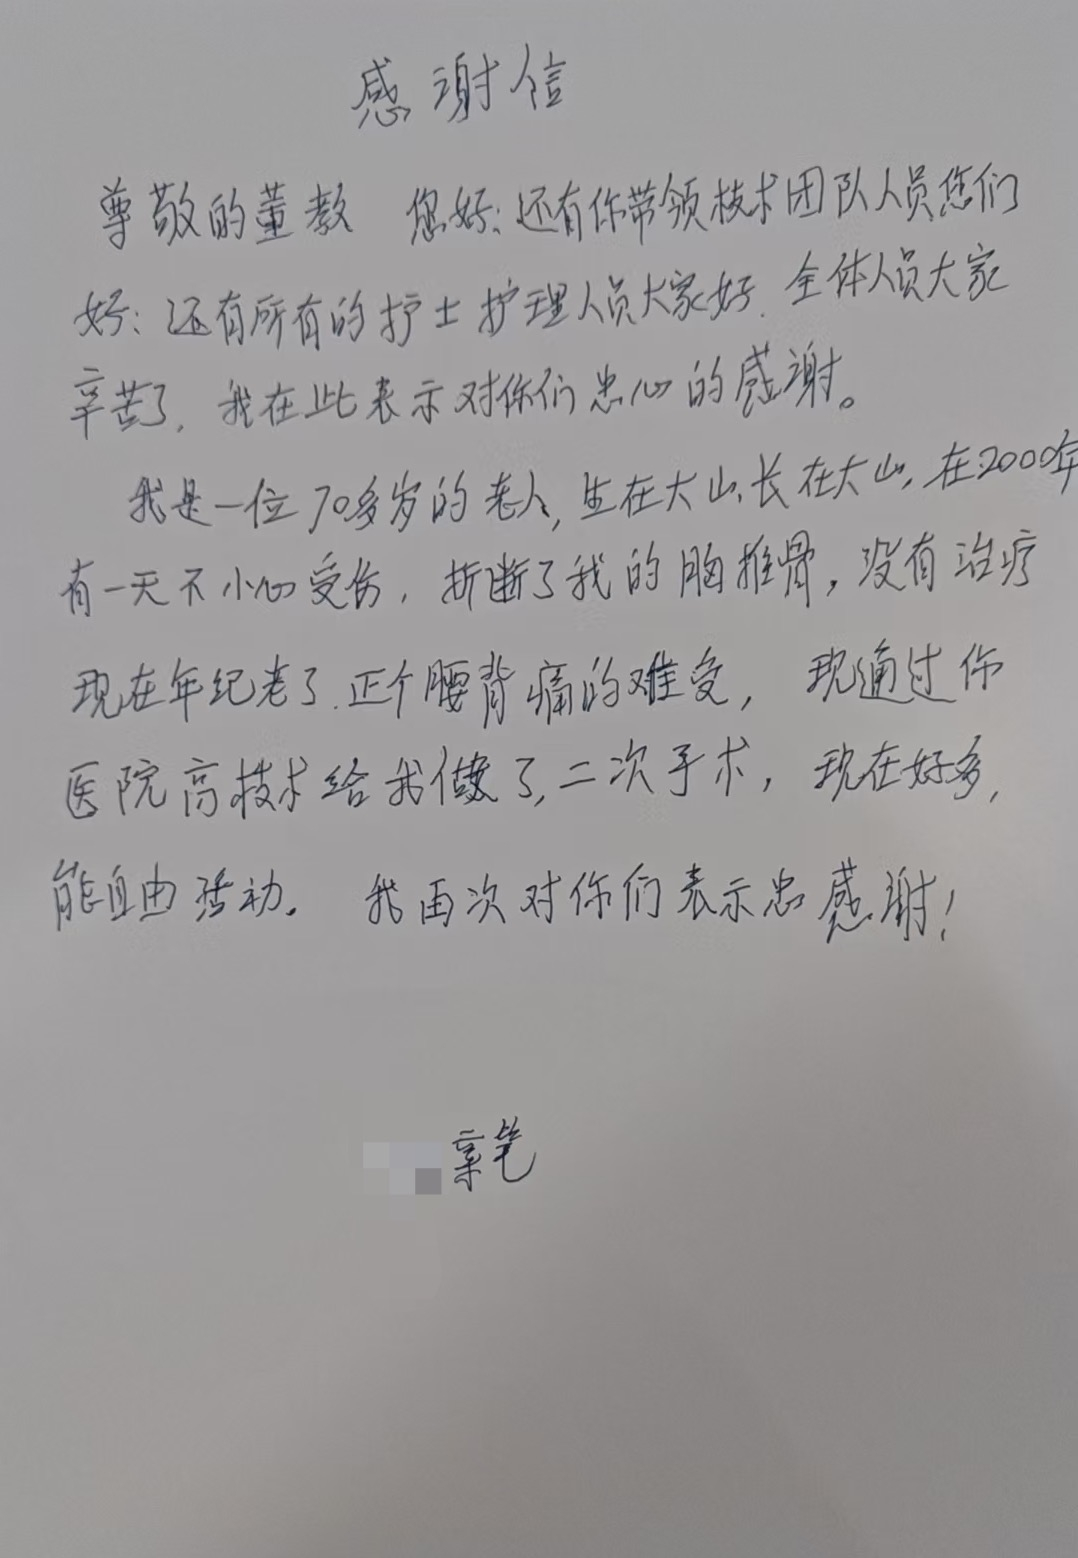 感谢信
尊敬的董教 您好:还有你带领技术团队人员您们
好:还有所有的护士护理人员大家好.全体人员大家
辛苦了,我在此表示对你们忠心的感谢。
我是一位70多岁的老人,生在大山、长在大山,在2000年
有一天不小心受伤,折断了我的胸椎骨,没有治疗
现在年纪老了.正个腰背痛的难受,现通过你
医院高技术给我做了,二次手术,现在好多,
能自由活动。我再次对你们表示忠感谢!
亲笔